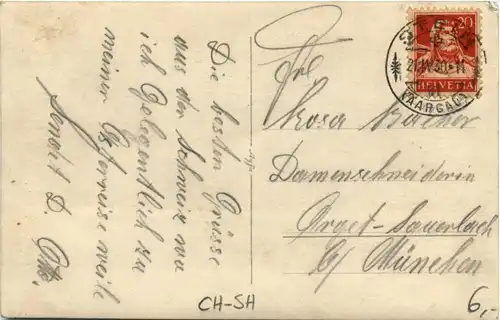 Die besten Grüsse
aus der Schweiz wo
ich gelegentlich zu
meiner Osterreise weile
sendet D. Otto.
Frl.
Rosa Bücher
Damenschneiderin
Orget-Sauerlach
b/ München
20
HELVETIA
(AARGAU)
CH-SH
6,-